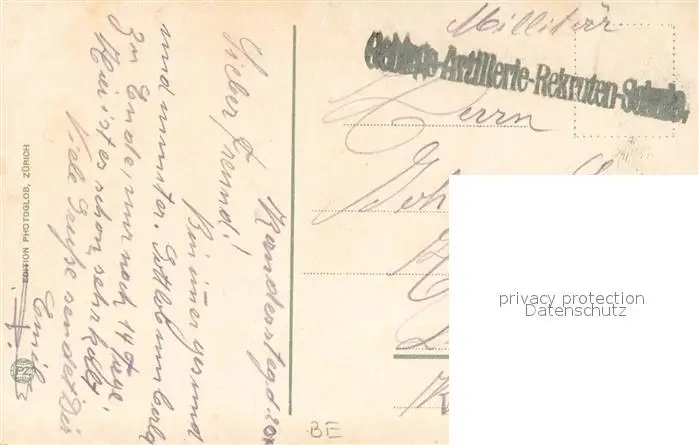 Millitär
Gebirgs-Artillerie-Rekruten-Schule.
Herrn
Joh
privacy protection
Datenschutz
Kandersteg d. 20
Lieber Freund!
Bin imer gesund
und munter. Gottlob nun bald
zu Ende, nur noch 14 Tage.
Hier ist es schon sehr kalt.
Viele Grüße sendet Dir
Emil
EDITION PHOTOGLOB, ZÜRICH
PZ
BE